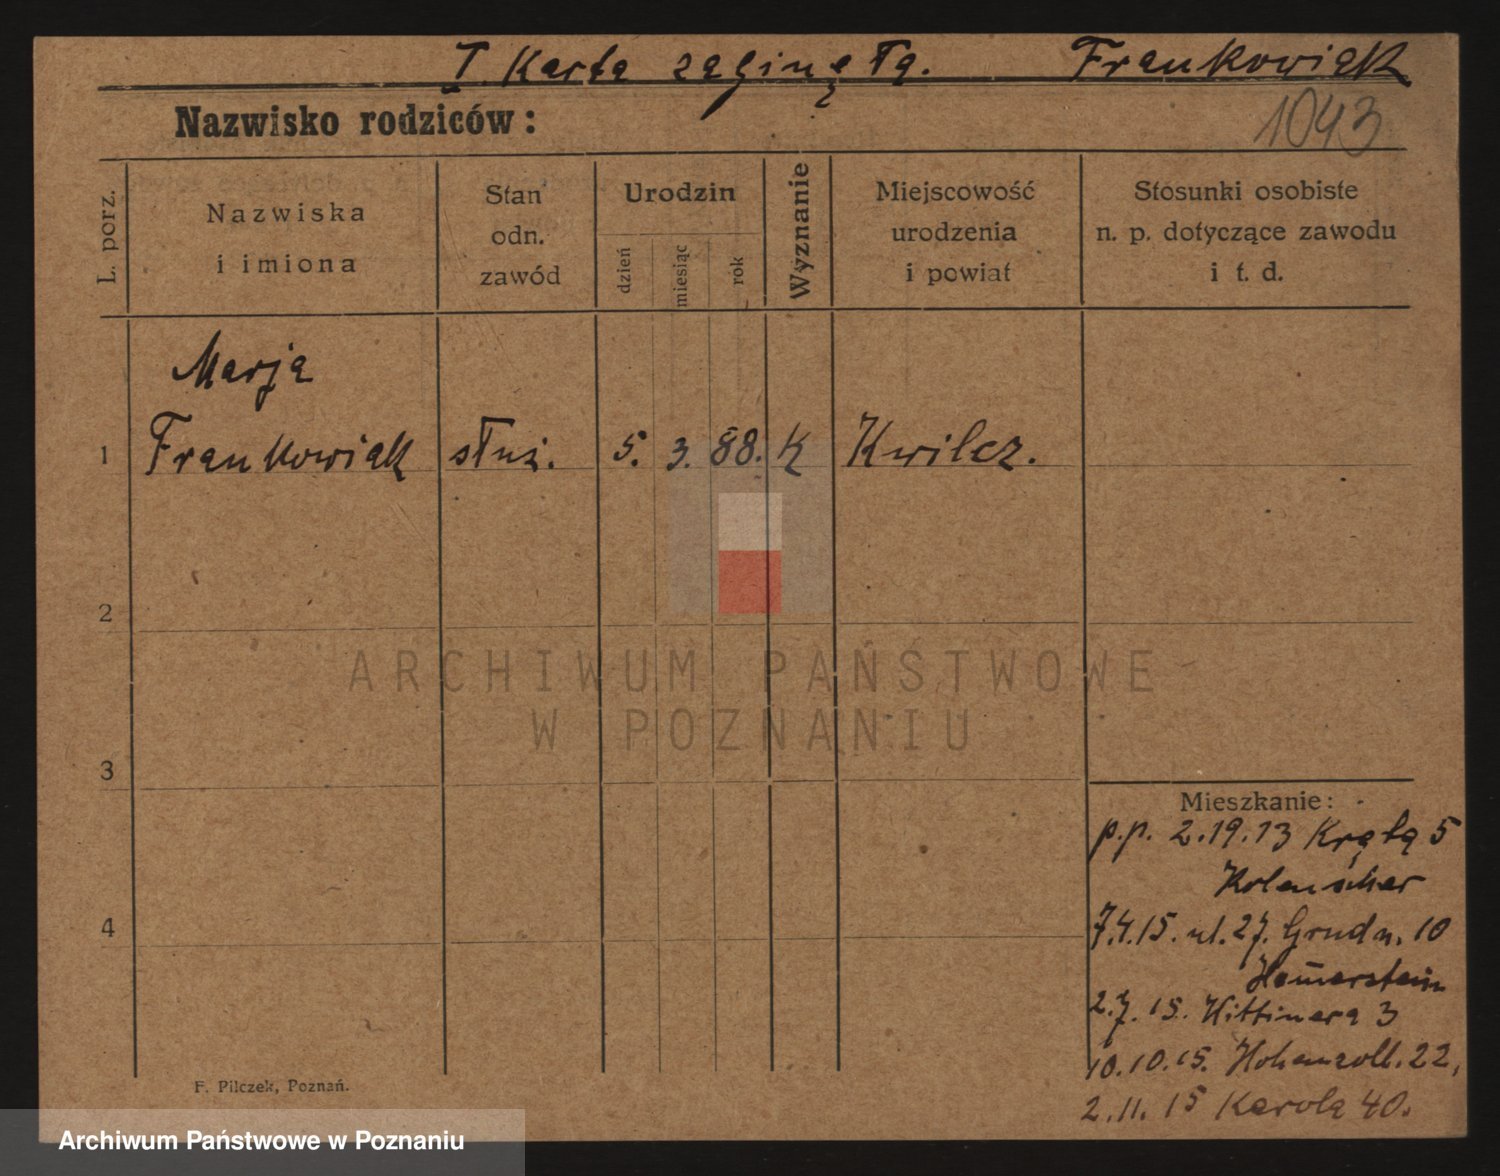 I. Karta zaginęła. Frankowiak
1043
Nazwisko rodziców:
L. porz.
Nazwiska
i imiona
Stan
odn.
zawód
Urodzin
dzień
miesiąc
rok
Wyznanie
Miejscowość
urodzenia
i powiat
Stosunki osobiste
n. p. dotyczące zawodu
i t. d.
Marja
1 Frankowiak służ. 5. 3. 88. K Kwilcz.
2
ARCHIWUM PAŃSTWOWE
W POZNANIU
3
Mieszkanie:
p.p. 2.19.13 Krętą 5
Kolenscher
4
7.4.15. ul. 27. Grudn. 10
Hamerstein
2.7.15. Kittinera 3
10.10.15. Hohenzoll. 22,
2.11.15 Karola 40.
F. Pilczek, Poznań.
Archiwum Państwowe w Poznaniu